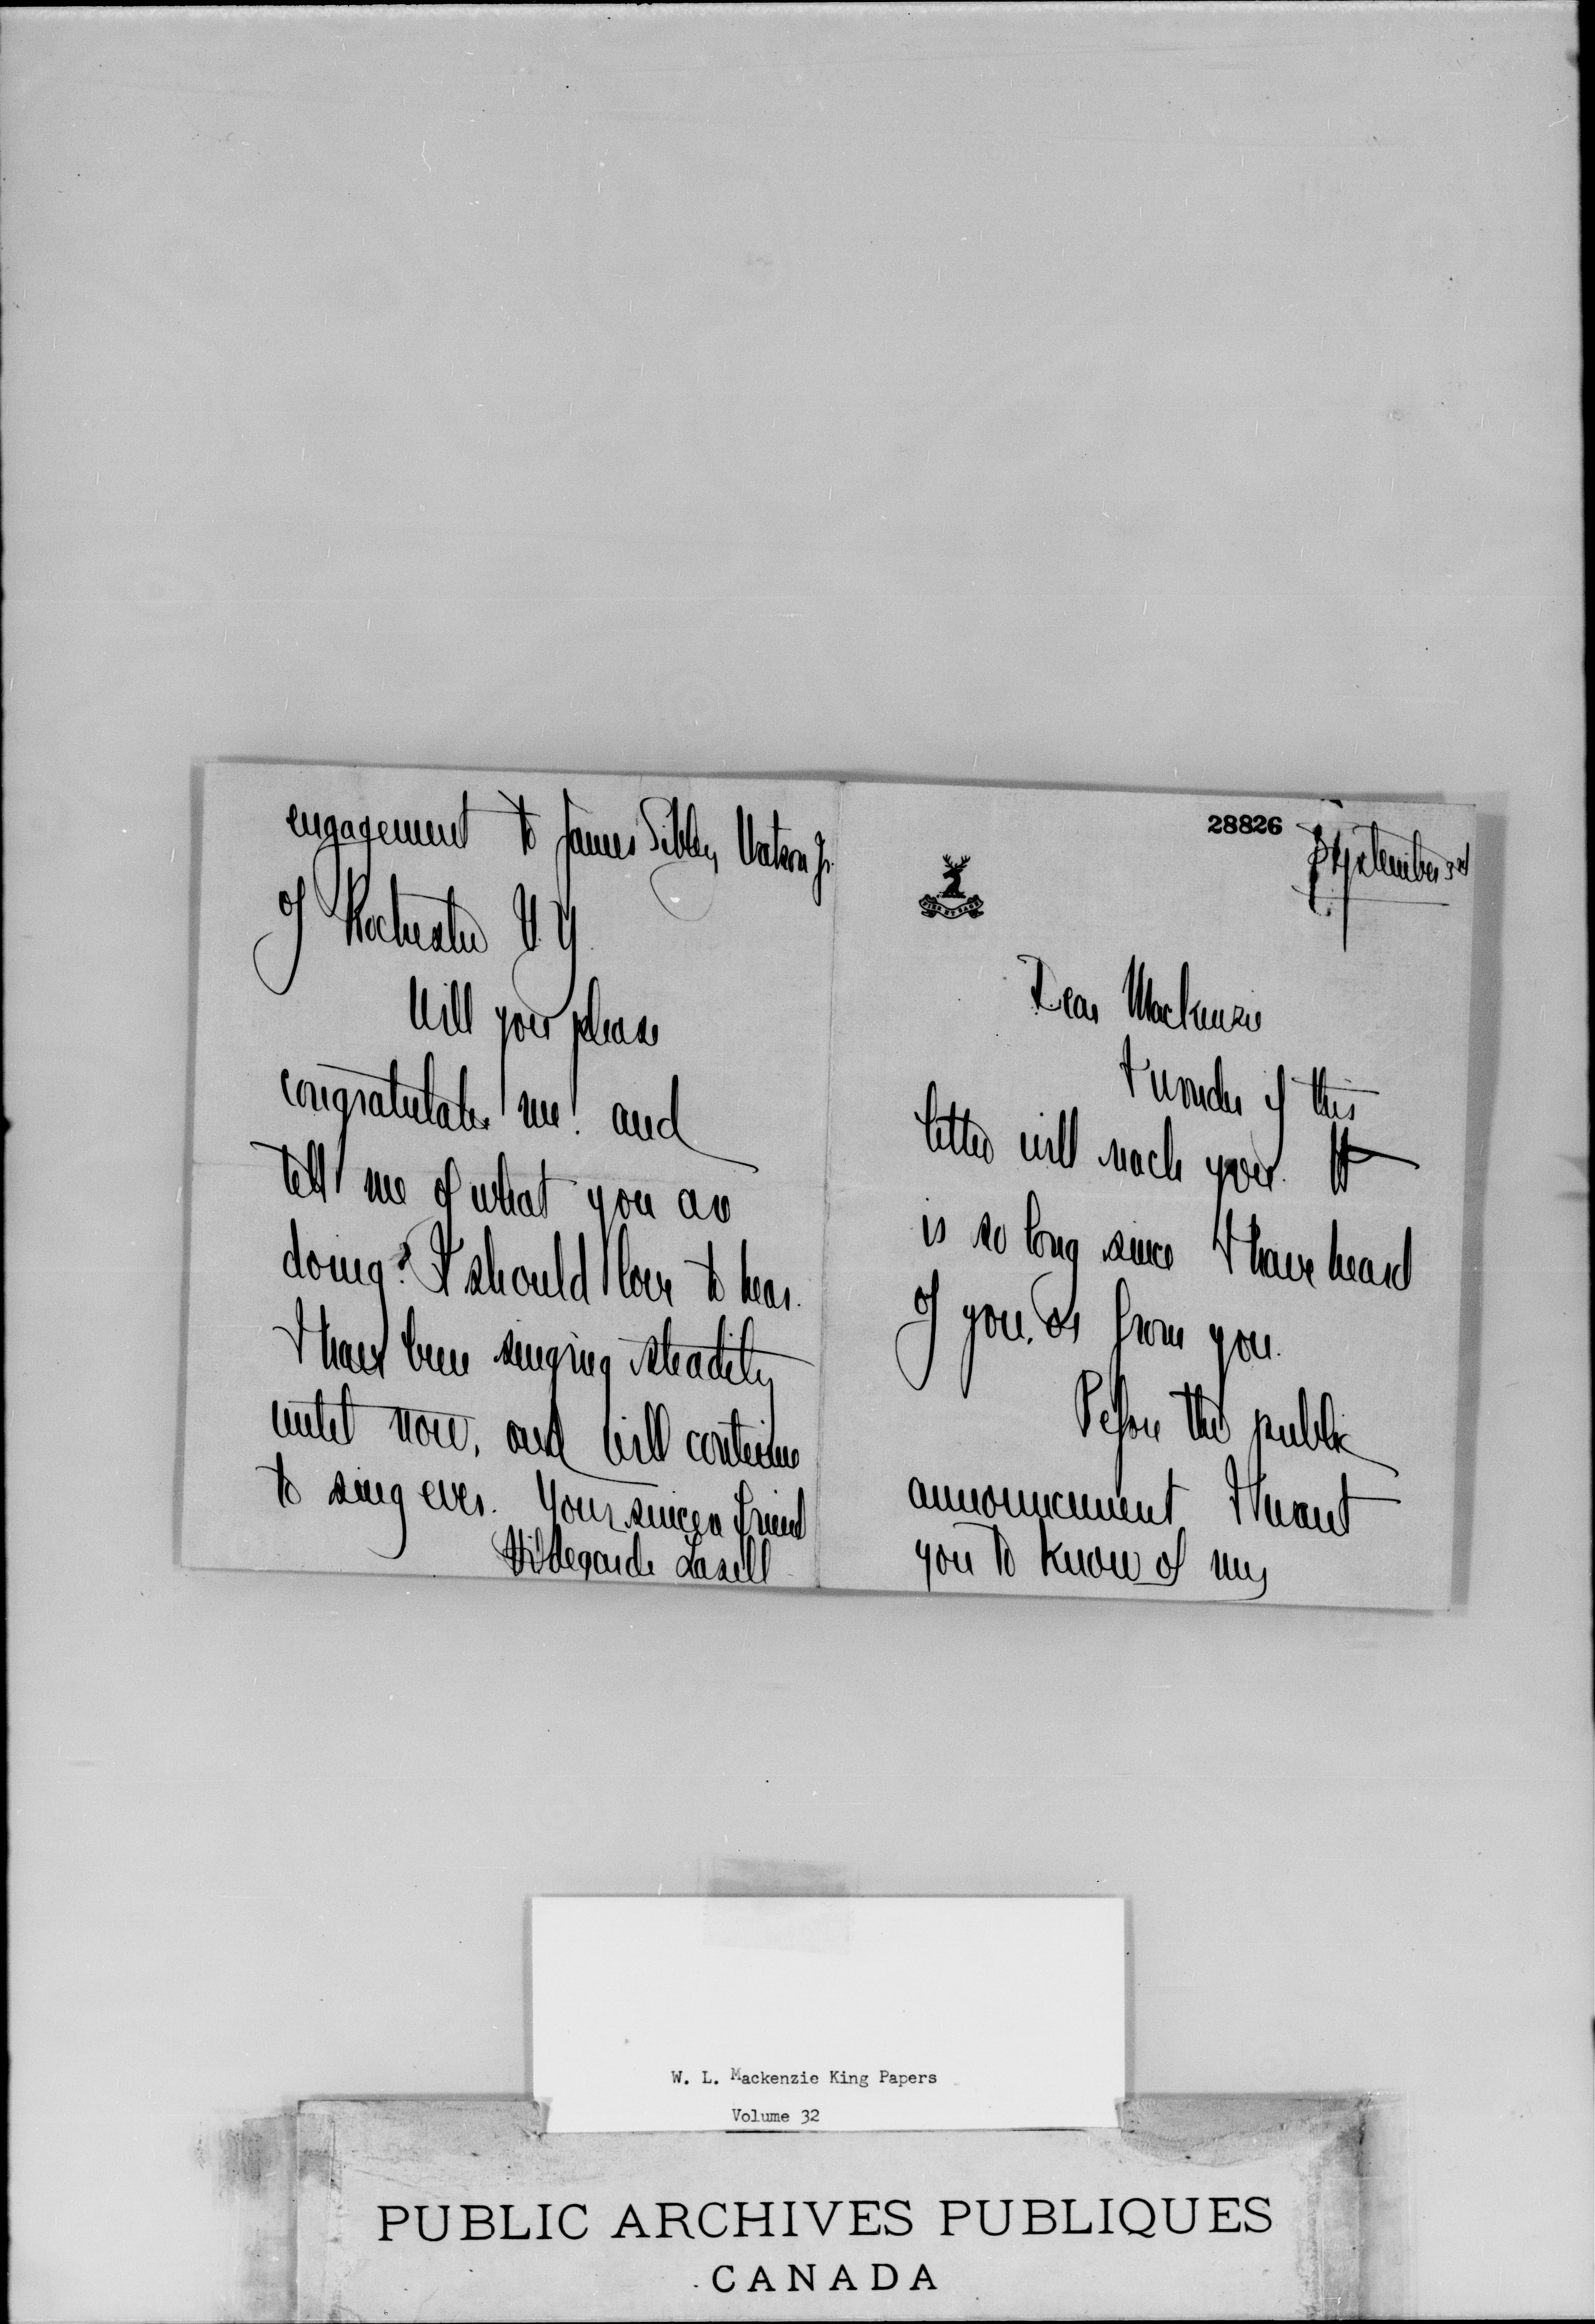 28826
September 3rd
Dear Mackenzie
I wonder if this
letter will reach you. It
is so long since I have heard
of you, or from you.
Before the public
announcement I want
you to know of my
engagement to James Sibley Watson Jr.
of Rochester N.Y.
Will you please
congratulate me! and
tell me of what you are
doing? I should love to hear.
I have been singing steadily
until now, and will continue
to sing ever. Your sincere friend
Hildegarde Lasell
W. L. Mackenzie King Papers
Volume 32
PUBLIC ARCHIVES PUBLIQUES
CANADA